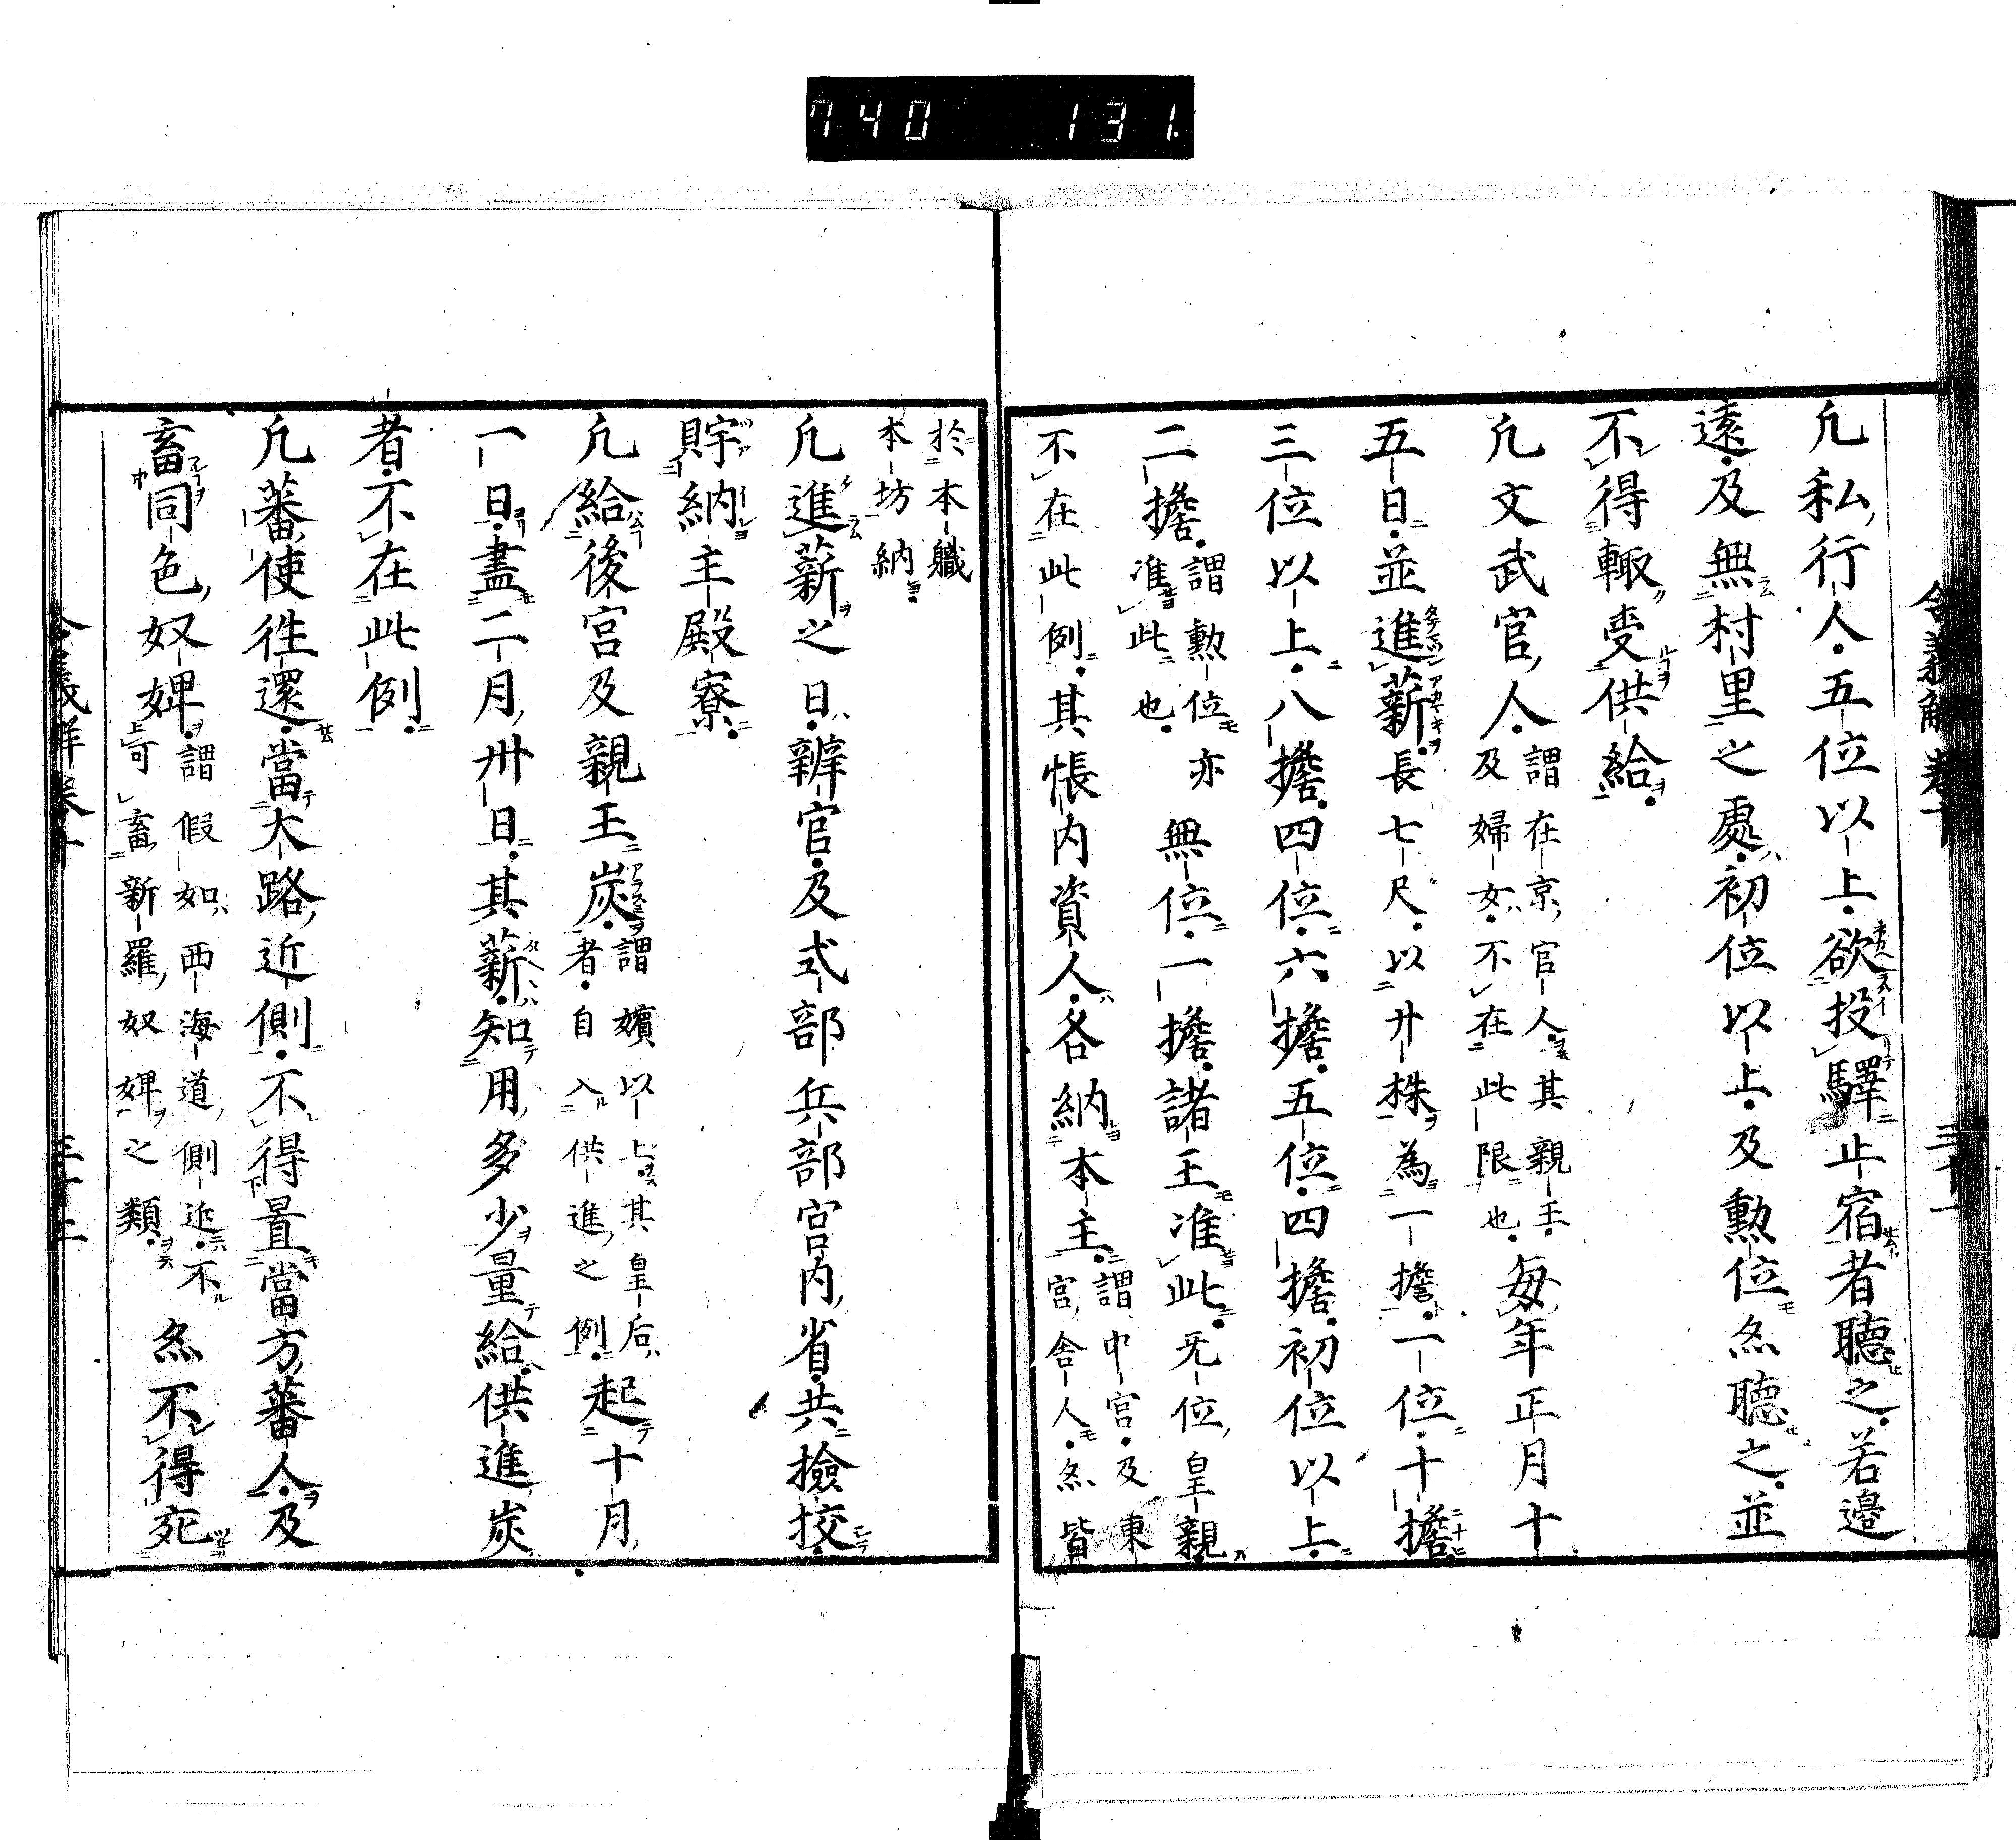 740 131.
凢私行人五位以上欲投驛止宿者聽之若邊
遠及無村里之處初位以上及勲位亦聽之並
不得輙受供給
凢文武官人謂在京官人其親王
及婦女不在此限也毎年正月十
五日並進薪長七尺以廾株為一擔一位十擔
三位以上八擔四位六擔五位四擔初位以上
二擔謂勲位亦
准此也無位一擔諸王准此謂无位皇親
不在此例其帳内資人各納本主謂中宮及東
宮舎人亦皆
於本職
本坊納
凢進薪之日辨官及式部兵部宮内省共撿挍
貯納主殿寮
凢給後宮及親王炭謂嬪以上其皇后
者自入供進之例起十月
一日盡二月卅日其薪知用多少量給供進炭
者不在此例
凢蕃使徃還當大路近側不得置當方蕃人及
畜同色奴婢謂假如西海道側近不
可畜新羅奴婢之類亦不得宛